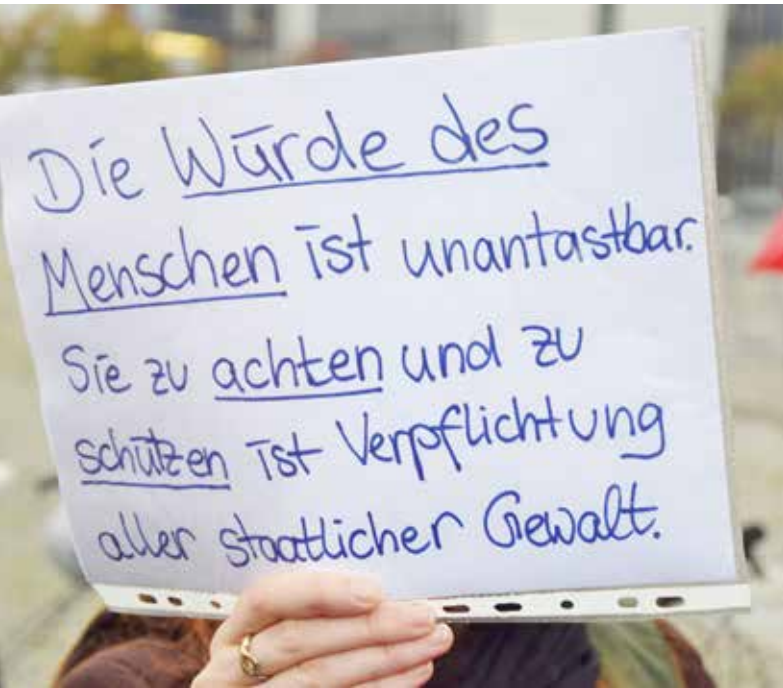 Die Würde des
Menschen ist unantastbar.
Sie zu achten und zu
schützen ist Verpflichtung
aller staatlicher Gewalt.